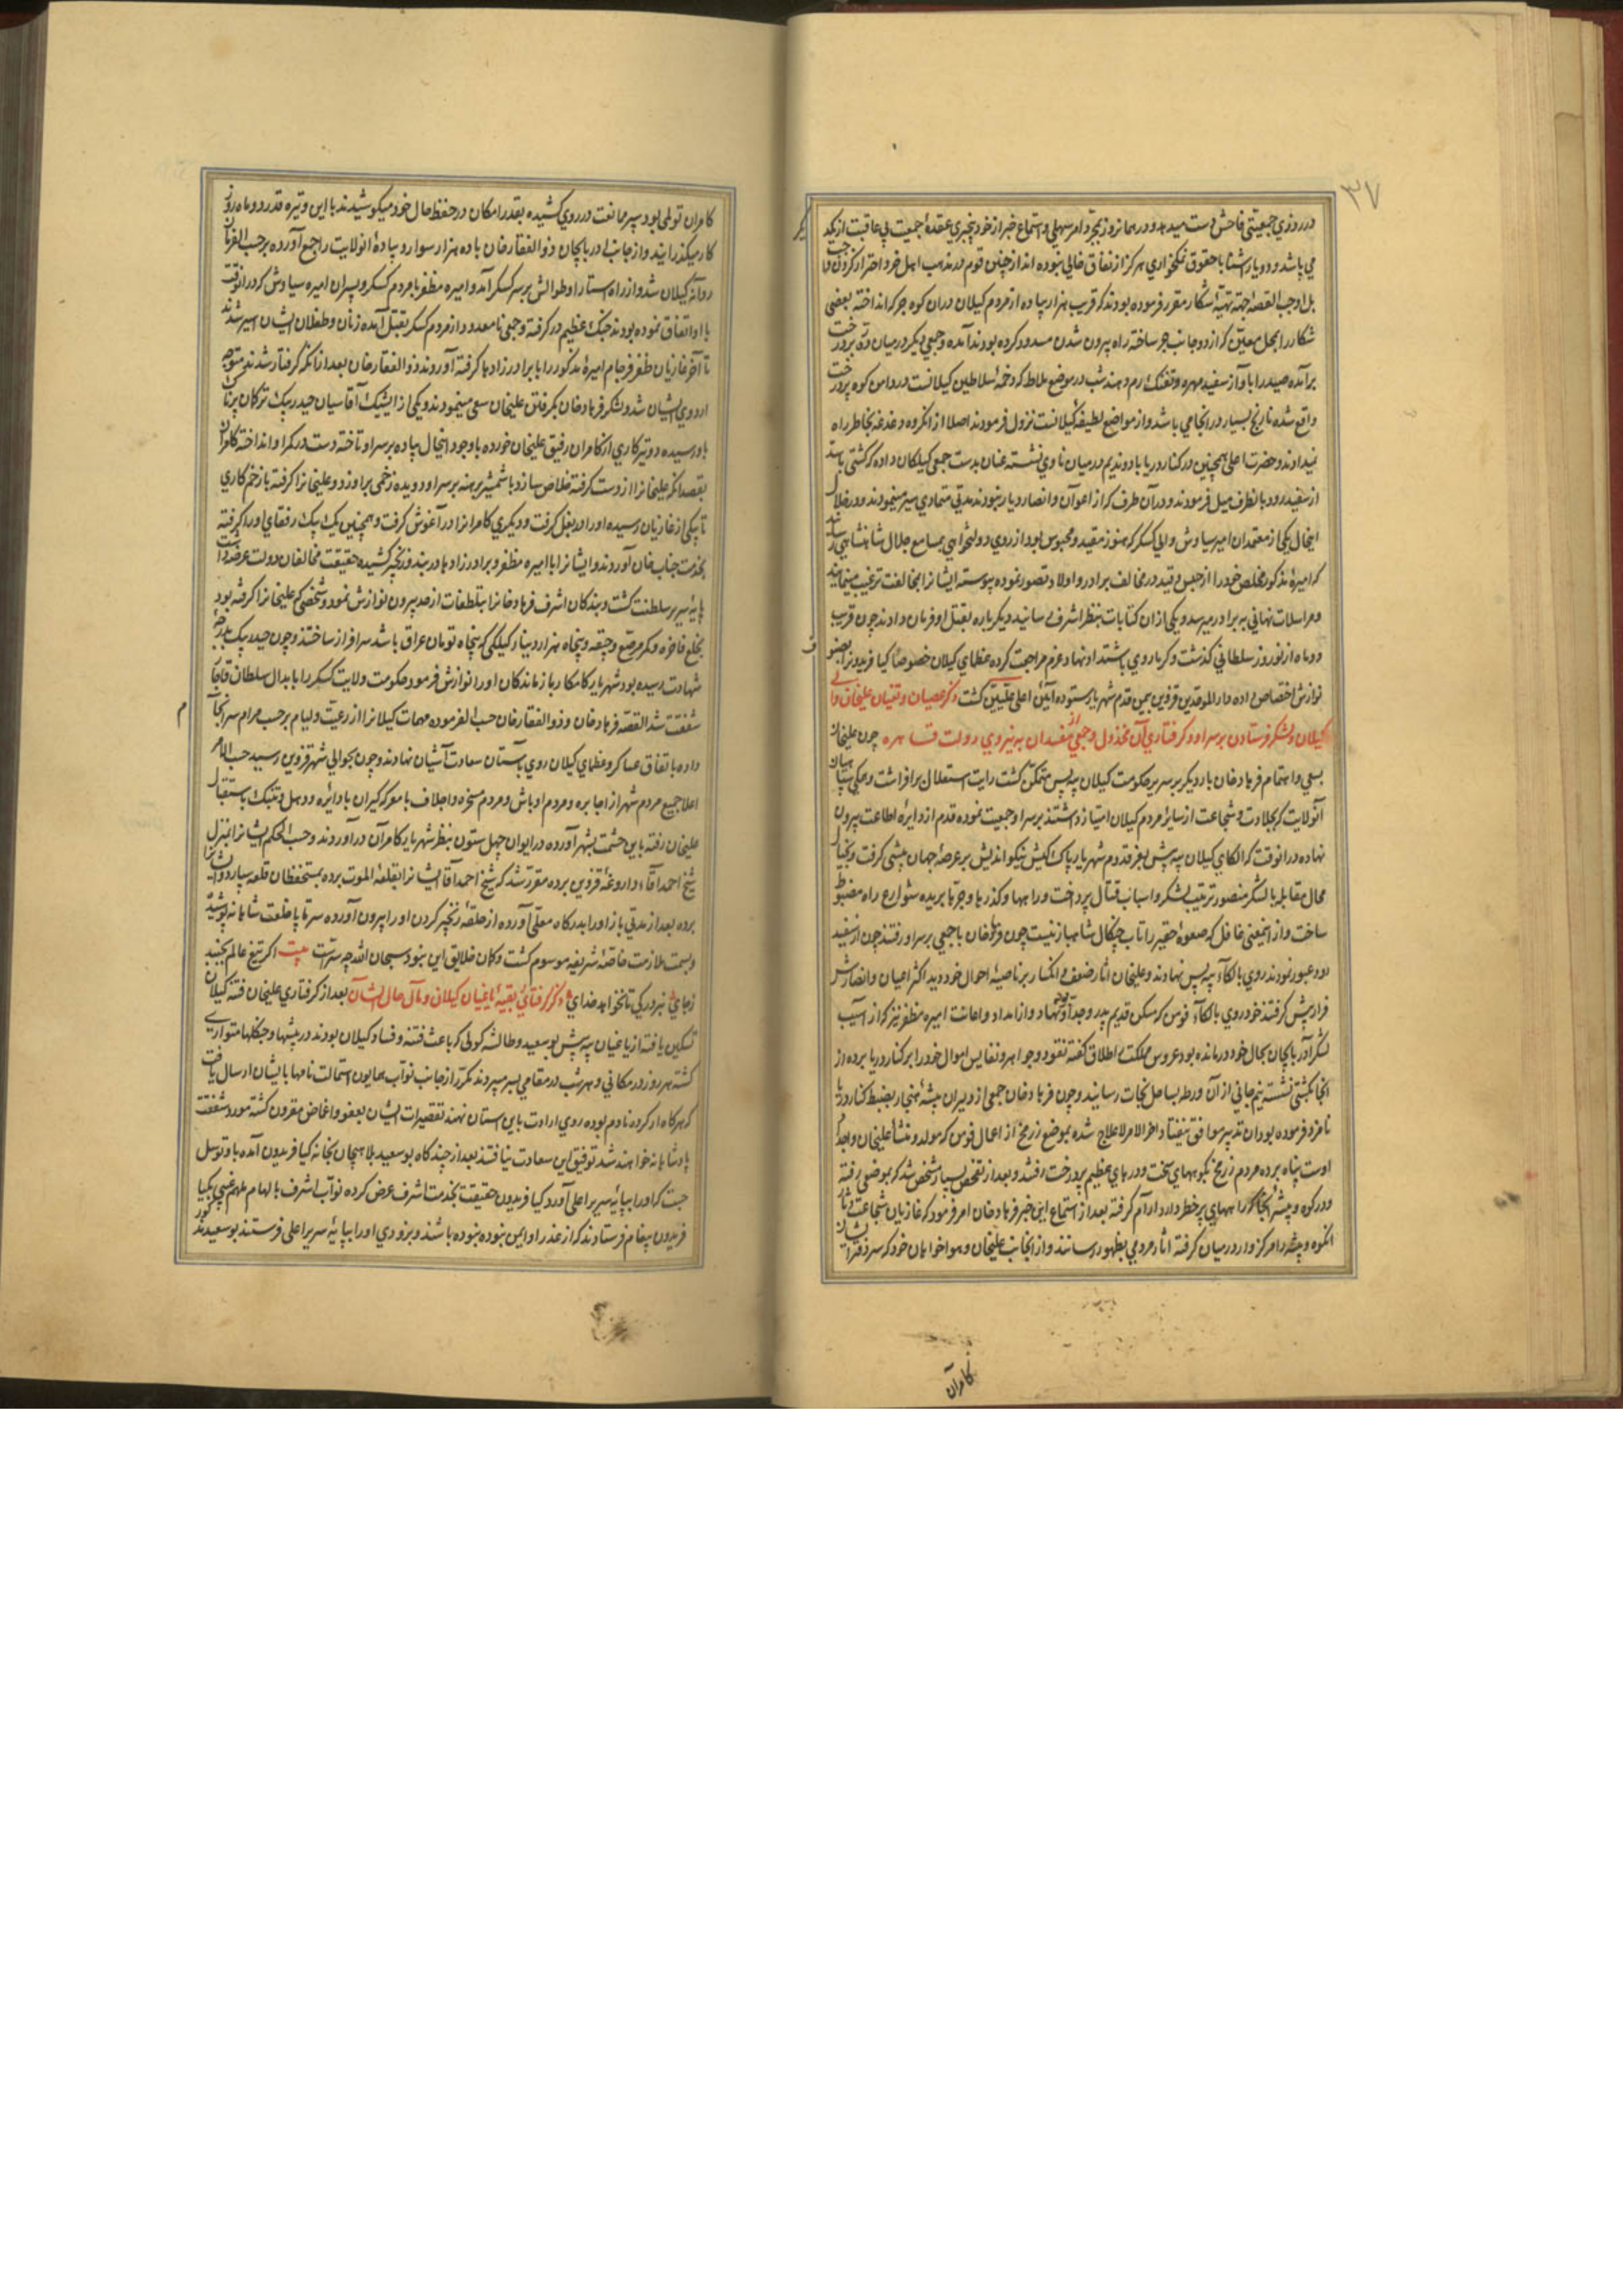 ۳۷
در روزی جمعیتی فاحش دست میدهد و در همانروز بمجرد امر سهلی و استماع خبر از خود بیخبری عقده جمعیت بی عاقبت از یکدیگر
می پاشد و دو یار آشنا با حقوق نمکخواری هرگز از نفاق خالی نبوده اند از چنین قوم در مذهب اهل خرد احتراز کردن واجب
بل اوجب القصه جهة تهیه اشکار مقرر فرموده بودند که قریب هزار پیاده از مردم کیلان در ان کوه جرکه انداخته بعضی
شکار را بمحل معین که از دو جانب جر ساخته راه بیرون شدن مسدود کرده بودند آمده و جمعی دیکر در میان دره پر درخت
برآمده صید را باواز سفید مهره و تفنک رم دهند شب در موضع ملاط که دخمه سلاطین کیلانست در دامن کوه پر درخت
واقع شده نارنج بسیار در انجا می باشد و از مواضع لطیفه کیلانست نزول فرمودند اصلا از انکروه دغدغه بخاطر راه
نمیدادند و حضرت اعلی همچنین در کنار دریا با دو ندیم در میان ناوی نشسته عنان بدست جمعی کیلکان داده که کشتی باشد
از سفیدرود بانطرف میل فرمودند و در آن طرف که از اعوان و انصار دیار نبودند مدتی متمادی سیر مینمودند و در خلال
اینحال یکی از معتمدان امیر سیاوش والی کسکر که هنوز مقید و محبوس بود از روی دولتخواهی بمسامع جلال شاهنشاهی رسانید
که امیره مذکور مخلص خود را از حبس و قید در مخالف برادر و اولاد تصور نموده پیوسته ایشانرا بمخالفت ترغیب مینماید
و مراسلات نهانی به برادر میرسد و یکی از ان کتابات بنظر اشرف رسانید و دیکر باره بقتل او فرمان دادند چون قریب
دو ماه از نوروز سلطانی کذشت و کرما روی باشتداد نهاد عزم مراجعت کرده عظمای کیلان خصوصا کیا فریدونرا بعضو
نوازش اختصاص داده دار الموحدین قزوین بیمن قدم شهریار ستوده آیین اعلی علیین کشت ذکر عصیان و تغیان علیخان والی
کیلان و لشکر فرستادن بر سر او و کرفتاری آن مخذول و جمعی از مفسدان به نیروی دولت قاهره چون علیخان
بسعی و اهتمام فرهادخان بار دیکر بر سریر حکومت کیلان بیه پس متمکن کشت رایت استقلال برافراشت و همکی سپاهیان
آنولایت که بجلادت و شجاعت از سایر مردم کیلان امتیاز داشتند بر سر او جمعیت نموده قدم از دایره اطاعت بیرون
نهاده در انوقت که الکای کیلان بیه پیش بعز قدوم شهریار پاک کیش نیکو اندیش بر عرصه جهان پیشی کرفت و بخیال
محال مقابله با لشکر منصور ترتیب لشکر و اسباب قتال پرداخت و راهها و کذرها و جرها بریده شوارع راه مضبوط
ساخت و از اینمعنی غافل که صعوه حقیر را تاب چنکال شاهباز نیست چون فرهادخان با جمعی بر سر او رفتند چون از سفید
رود عبور نمودند روی بالکاء بیه پس نهادند و علیخان اثار ضعف و انکسار بر ناصیه احوال خود دید اکثر اعیان و انصارش
فرار پیش کرفتند خود روی بالکاء فومن که مسکن قدیم پدر و جد او بود نهاد و از امداد و اعانت امیره مظفر نیز که از آسیب
لشکر آذربایجان بحال خود درمانده بود عروس مملکت را طلاق کفته نقود و جواهر و نفایس اموال خود را بر کنار دریا برده و از
انجا بکشتی نشسته نیم جانی از آن ورطه بساحل نجات رسانید و چون فرهادخان جمعی از دلیران بیشه هنجار بضبط کنار دریا
نامزد فرموده بود ان تدبیر موافق نیفتاد اخر الامر لاعلاج شده بموضع زرمخ از اعمال فومن که مولد و منشأ علیخان و اجداد
اوست پناه برده مردم زرمخ بکوههای سخت و درهای عظیم پر درخت رفتند و بعد از تفحص بسیار مشخص شد که بموضعی رفته
و در کوه و بیشه انجا که راههای پر خطر دارد آرام کرفته بعد از استماع این خبر فرهادخان امر فرمود که غازیان شجاعت دثار
انکوه و بیشه را مرکزوار در میان کرفته اثار مردمی بظهور رسانند و از انجانب علیخان و هواخواهان خود که سر دفتر ایشان
کامران
کامران تولمی بود سپر ممانعت در روی کشیده بقدر امکان در حفظ حال خود میکوشیدند با این وتیره قدر دو ماه روز
کار میکذرانید و از جانب آذربایجان ذوالفقارخان با ده هزار سوار و پیاده انولایت را جمع آورده بر حسب الفرمان
روانه کیلان شد و از راه آستارا و طوالش بر سر کسکر آمد و امیره مظفر با مردم کسکر و پسران امیره سیاوش که در انوقت
با او اتفاق نموده بودند جنک عظیم در کرفته و جمعی نامعدود از مردم کسکر بقتل آمده زنان و طفلان ایشان اسیر شدند
تا آخر غازیان ظفر فرجام امیره مذکور را با برادرزادها کرفته آوردند ذوالفقارخان بعد از انکه کرفتار شدند متوجه
اردوی ایشیان شد و لشکر فرهادخان بکرفتن علیخان سعی مینمودند و یکی از ایشیک آقاسیان حیدربیک ترکمان پرناک
باو رسیده دو تیر کاری از کامران رفیق علیخان خورده باوجود اینحال پیاده بر سر او تاخته دست در کمر او انداخته کامران
بقصد انکه علیخانرا از دست کرفته خلاص سازد با شمشیر برهنه بر سر او دویده زخمی بر او زد و علیخانرا کرفته با زخم کاری
تا یکی از غازیان رسیده او را در بغل کرفت و دیکری کامرانرا در آغوش کرفت و همچنین یک یک رفقای او را کرفته
بخدمت جناب خان آوردند و ایشانرا با امیره مظفر و برادرزادها در بند و زنجیر کشیده حقیقت مخالفان دولت عرضه داشت
پایه سریر سلطنت کشت و بندکان اشرف فرهادخانرا بتلطفات از حد بیرون نوازش نمود و شخصی که علیخانرا کرفته بود
بخلع فاخره و کمر مرصع و جیقه و پنجاه هزار دینار کیلکی که پنجاه تومان عراق باشد سرافراز ساختند و چون حیدربیک بدرجه
شهادت رسیده بود شهریار کامکار بازماندکان او را نوازش فرمود حکومت ولایت کسکر را بابدال سلطان قاجار
شفقت شد القصه فرهادخان و ذوالفقارخان حسب الفرموده مهمات کیلانرا از رعیت و لیام بر حسب مرام سرانجام
داده باتفاق عساکر و عظمای کیلان روی بآستان سعادت آشیان نهادند و چون بحوالی شهر قزوین رسید حسب الامر
اعلا جمیع مردم شهر از اجابره و مردم اوباش و مردم مسخره و اجلاف با معرکه کیران با دایره و دهل و تنبک باستقبال
علیخان رفته باین حشمت بشهر آورده در ایوان چهل ستون بنظر شهریار کامران در آوردند و حسب الحکم ایشانرا بمنزل
شیخ احمد آقاء داروغه قزوین برده مقرر شد که شیخ احمد آقا ایشانرا بقلعه الموت برده بمستحفظان قلعه سپارد و ایشانرا
برده بعد از مدتی باز او را بدرکاه معلی آورده از حلقه زنجیر کردن او را بیرون آورده سرتاپا خلعت شاهانه پوشید
و بسمت ملازمت خاصه شریفه موسوم کشت و کمان خلایق این نبود سبحان الله چه سر است بیت اکر تیغ عالم بجنبد
زجای نبرد رکی تا نخواهد خدای ذکر کرفتاری بقیه یاغیان کیلان و مآل حال ایشان بعد از کرفتاری علیخان فتنه کیلان
تسکین یافته از یاغیان بیه پیش بوسعید و طالشه کولی که باعث فتنه و فساد کیلان بودند در بیشها و جنکلها متواری
کشته هر روز در مکانی و هر شب در مقامی بسر میبردند مکرر از جانب نواب همایون استمالت نامها بایشان ارسال یافت
که هر کاه از کرده نادم بوده روی ارادت باین استان نهند تقصیرات ایشان بعفو و اغماض مقرون کشته مورد شفقت
پادشاهانه خواهند شد توفیق این سعادت نیافتند بعد از چند کاه بوسعید بلاهیجان بخانه کیا فریدون آمده باو توسل
جست که او را بپایه سریر اعلی آورد کیا فریدون حقیقت بخدمت اشرف عرض کرده نواب اشرف بالهام ملهم غیبی بکیا
فریدون پیغام فرستادند که از غدر او ایمن نبوده نبوده باشند و بزودی او را بپایه سریر اعلی فرستند بوسعید مذکور